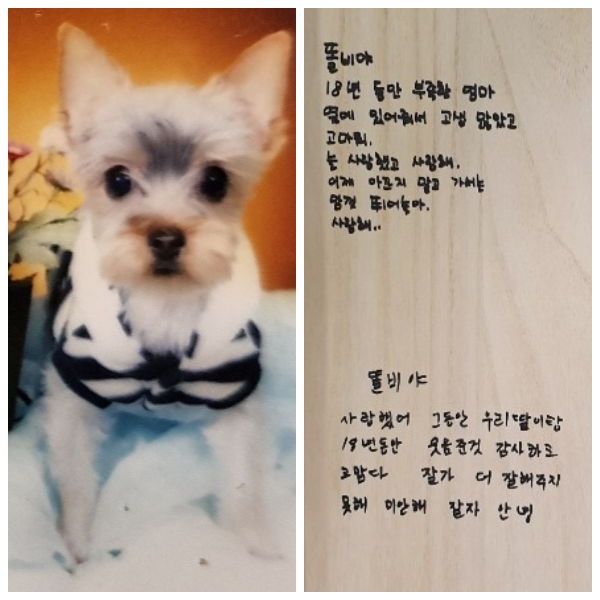 똘비야
18년 동안 부족한 엄마
옆에 있어줘서 고생 많았고
고마워.
눈 사랑했고 사랑해.
이제 아프지 말고 가서는
맘껏 뛰어놀아.
사랑해..
똘비야
사랑했어 그동안 우리딸이랑
18년동안 웃음준것 감사하고
고맙다 잘가 더 잘해주지
못해 미안해 잘자 안녕